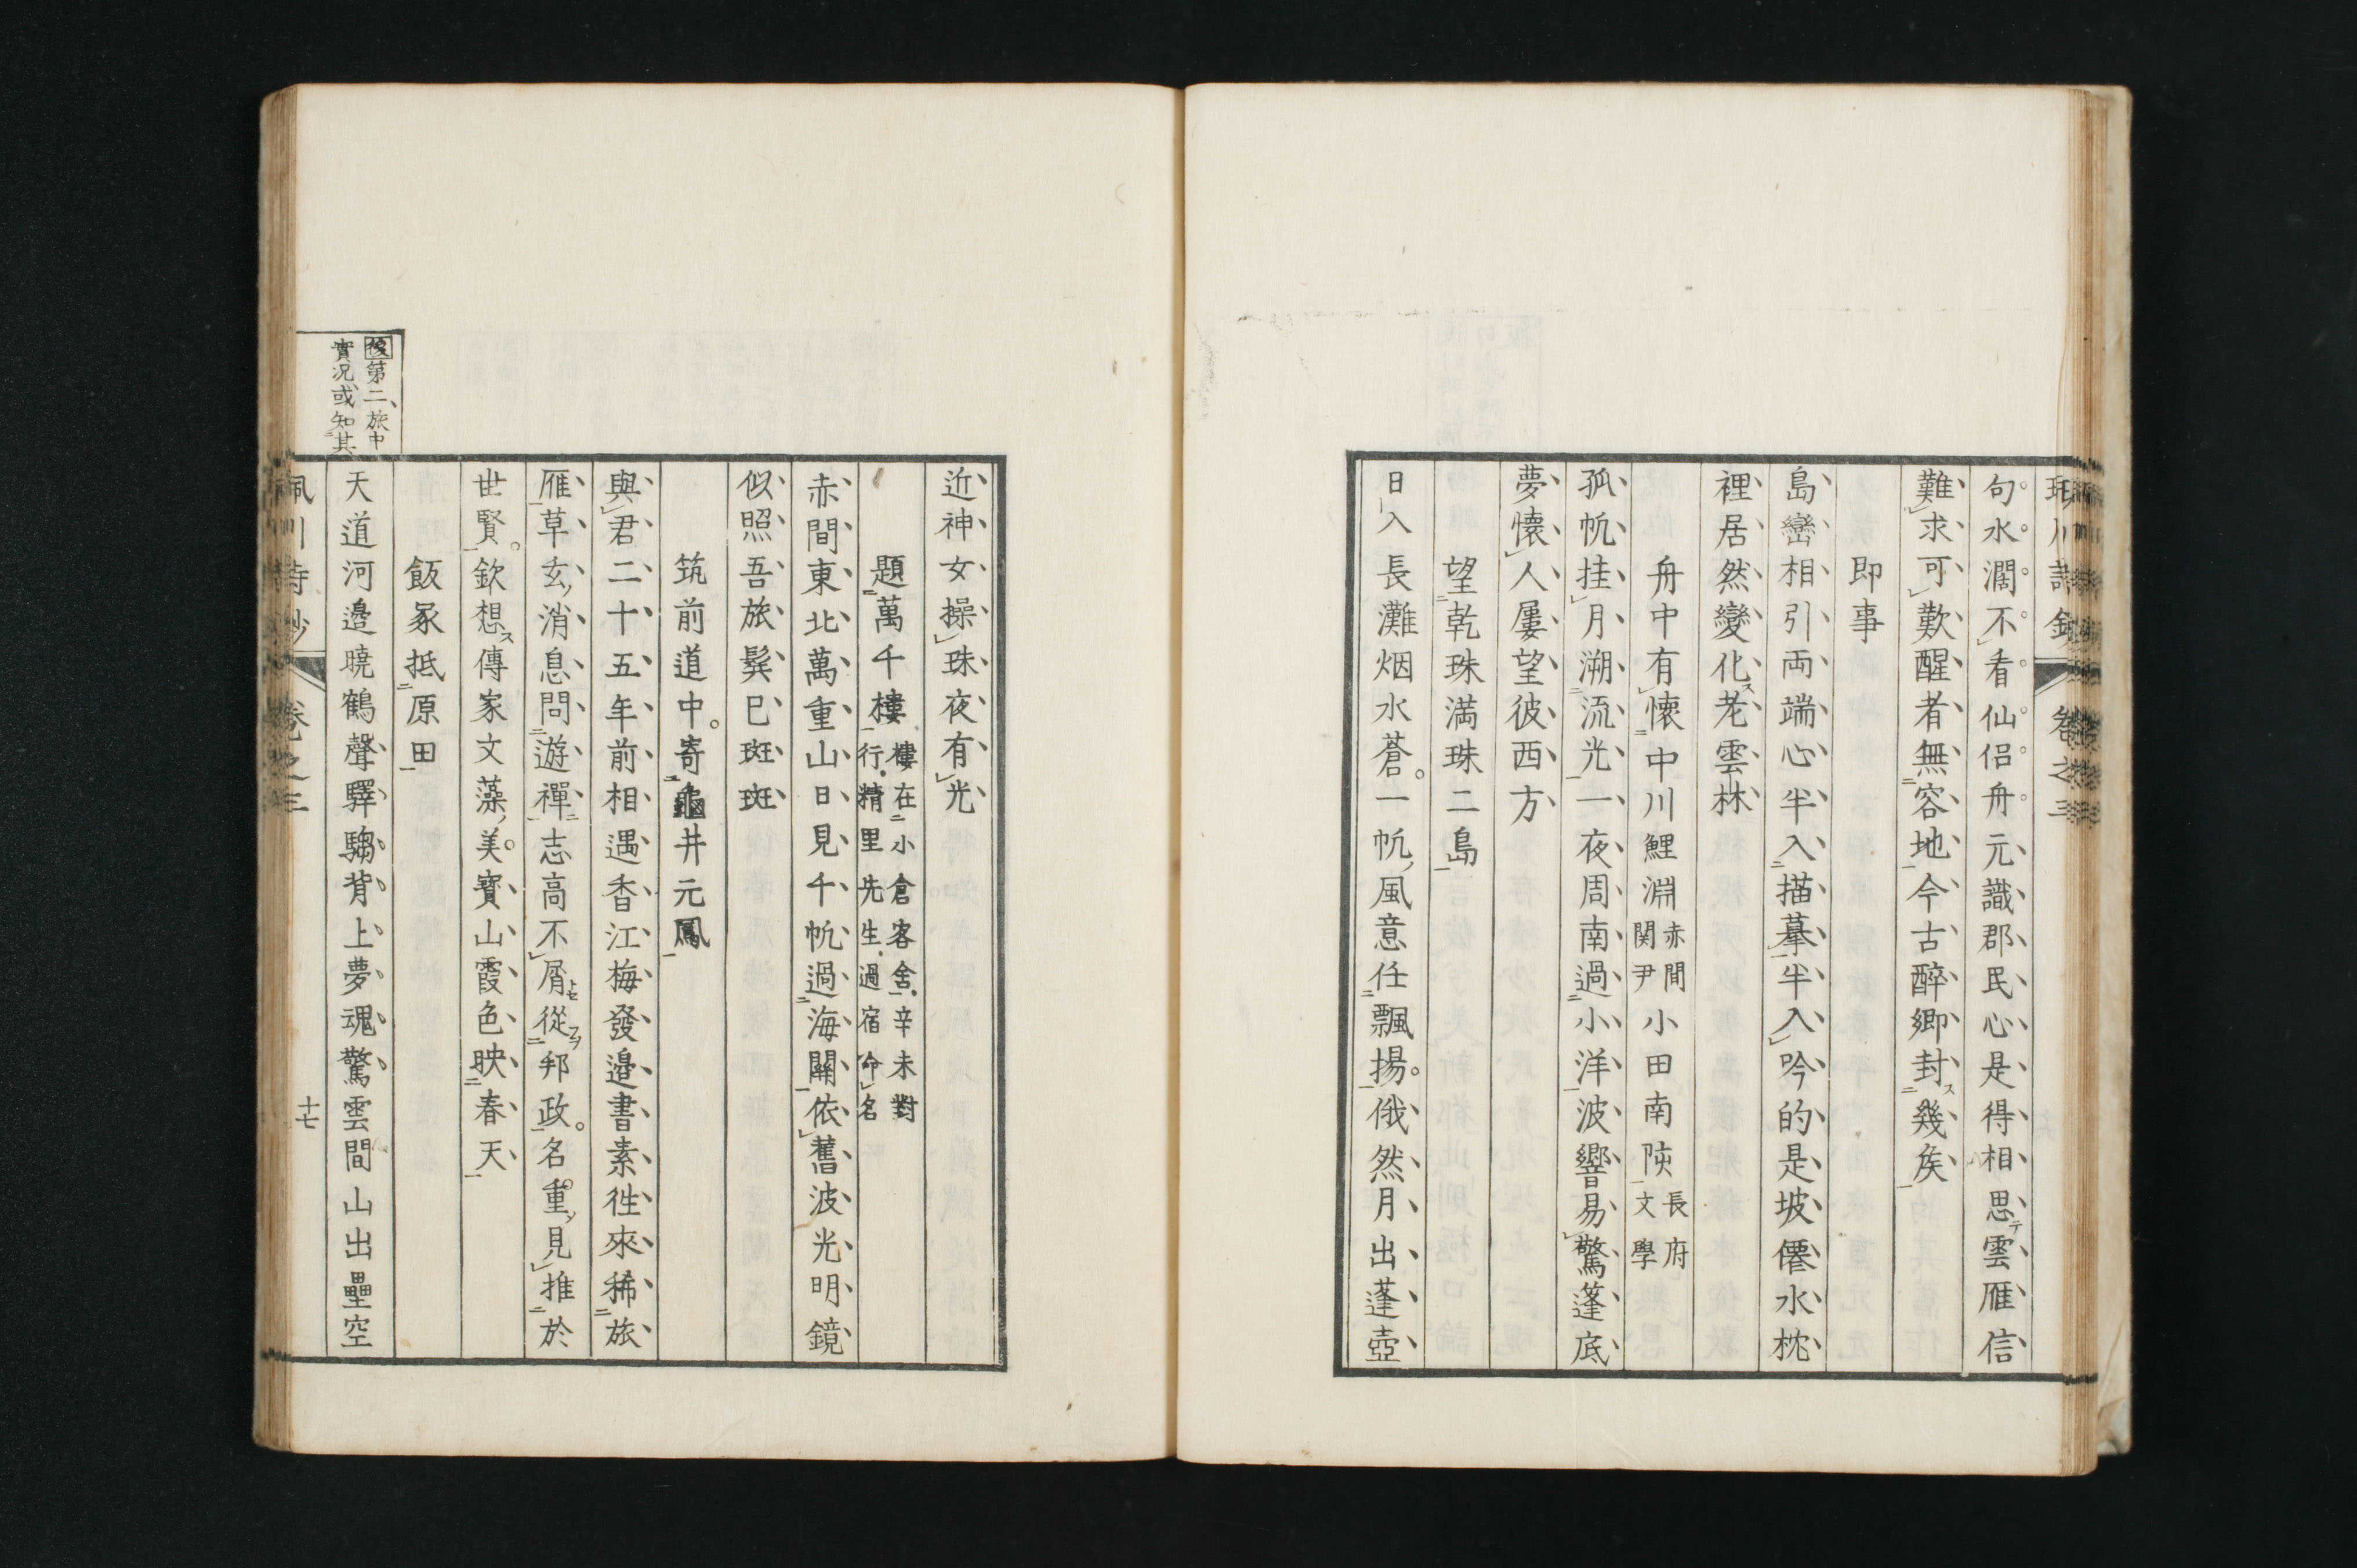 句水濶不看仙侶舟元識郡民心是得相思雲雁信
難求可歎醒者無容地今古醉鄉封幾矦
即事
島巒相引両端心半入描摹半入吟的是坡僊水枕
裡居然變化老雲林
舟中有懷中川鯉淵赤間関尹小田南陔長府文學
孤帆挂月溯流光一夜周南過小洋波響易驚篷底
夢懷人屢望彼西方
望乾珠満珠二島
日入長灘烟水蒼一帆風意任飄揚俄然月出蓬壺
近神女操珠夜有光
題萬千樓樓在小倉客舍辛未對行精里先生過宿命名
赤間東北萬重山日見千帆過海關依舊波光明鏡
似照吾旅鬂已斑斑
筑前道中寄龜井元鳳
與君二十五年前相遇香江梅發邉書素徃來稀旅
雁草玄消息問遊禪志高不屑從邦政名重見推於
世賢欽想傳家文藻美寳山霞色映春天
飯冢抵原田
後第二旅中
實况或知其
天道河邉曉鶴聲驛騶背上夢魂驚雲間山出壘空
卷之三
十七